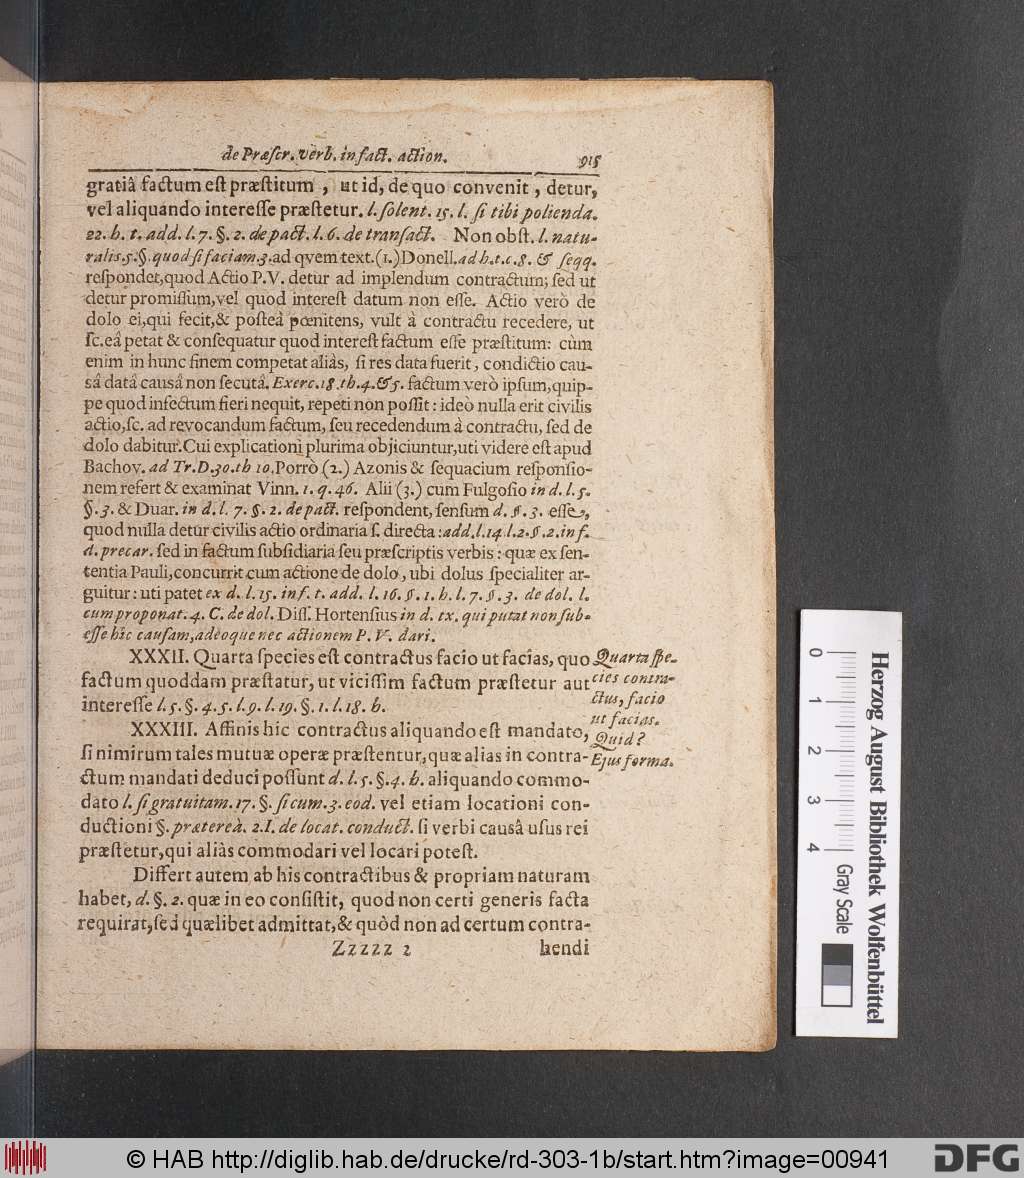 de Præſcr. verb. in fact. action. 915
gratiâ factum eſt præſtitum, ut id, de quo convenit, detur,
vel aliquando intereſſe præſtetur. l. ſolent. 15. l. ſi tibi polienda.
22. h. t. add. l. 7. §. 2. de pact. l. 6. de tranſact. Non obſt. l. natu-
ralis. 5. §. quod ſi faciam 3. ad qvem text. (1.) Donell. ad h. t. c. 8. & ſeqq.
reſpondet, quod Actio P. V. detur ad implendum contractum; ſed ut
detur promiſſum, vel quod intereſt datum non eſſe. Actio verò de
dolo ei, qui fecit, & poſteà pœnitens, vult à contractu recedere, ut
ſc. eâ petat & conſequatur quod intereſt factum eſſe præſtitum: cùm
enim in hunc finem competat aliàs, ſi res data fuerit, condictio cau-
sâ datâ causâ non ſecutâ. Exerc. 18. th. 4. & 5. factum verò ipſum, quip-
pe quod infectum fieri nequit, repeti non poſſit: ideò nulla erit civilis
actio, ſc. ad revocandum factum, ſeu recedendum à contractu, ſed de
dolo dabitur. Cui explicationi plurima objiciuntur, uti videre eſt apud
Bachov. ad Tr. D. 30. th 10. Porrò (2.) Azonis & ſequacium reſponſio-
nem refert & examinat Vinn. 1. q. 46. Alii (3.) cum Fulgoſio in d. l. 5.
§. 3. & Duar. in d. l. 7. §. 2. de pact. reſpondent, ſenſum d. §. 3. eſſe,
quod nulla detur civilis actio ordinaria ſ. directa: add. l. 14 l. 2. §. 2. in f.
d. precar. ſed in factum ſubſidiaria ſeu præſcriptis verbis: quæ ex ſen-
tentia Pauli, concurrit cum actione de dolo, ubi dolus ſpecialiter ar-
guitur: uti patet ex d. l. 15. in f. t. add. l. 16. §. 1. h. l. 7. §. 3. de dol. l.
cum proponat. 4. C. de dol. Diſſ. Hortenſius in d. tx. qui putat non ſub-
eſſe hic cauſam, adeoque nec actionem P. V. dari.
XXXII. Quarta ſpecies eſt contractus facio ut facias, quo
factum quoddam præſtatur, ut viciſſim factum præſtetur aut
intereſſe l. 5. §. 4. 5. l. 9. l. 19. §. 1. l. 18. h.
Quarta ſpe-
cies contra-
ctus, facio
ut facias.
Quid?
Ejus forma.
XXXIII. Affinis hic contractus aliquando eſt mandato,
ſi nimirum tales mutuæ operæ præſtentur, quæ alias in contra-
ctum mandati deduci poſſunt d. l. 5. §. 4. h. aliquando commo-
dato l. ſi gratuitam. 17. §. ſi cum. 3. eod. vel etiam locationi con-
ductioni §. prætereà. 2. I. de locat. conduct. ſi verbi causâ uſus rei
præſtetur, qui aliàs commodari vel locari poteſt.
Differt autem ab his contractibus & propriam naturam
habet, d. §. 2. quæ in eo conſiſtit, quod non certi generis facta
requirat, ſed quælibet admittat, & quòd non ad certum contra-
Zzzzz 2 hendi
0 1 2 3 4
Herzog August Bibliothek Wolfenbüttel
Gray Scale
© HAB http://diglib.hab.de/drucke/rd-303-1b/start.htm?image=00941
DFG